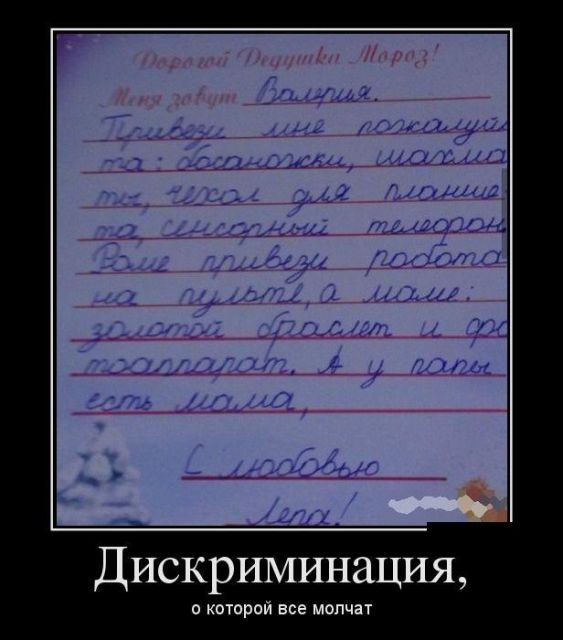 Дорогой Дедушка Мороз!
Меня зовут Валерия.
Привези мне пожалуйс
та: босаножки, шахма
ты, чехол для планше
та, сенсорный телефон
Роме привези робота
на пульте, а маме:
золотой браслет и фо
тоаппарат. А у папы
есть мама,
С любовью
Лера!
Дискриминация,
о которой все молчат